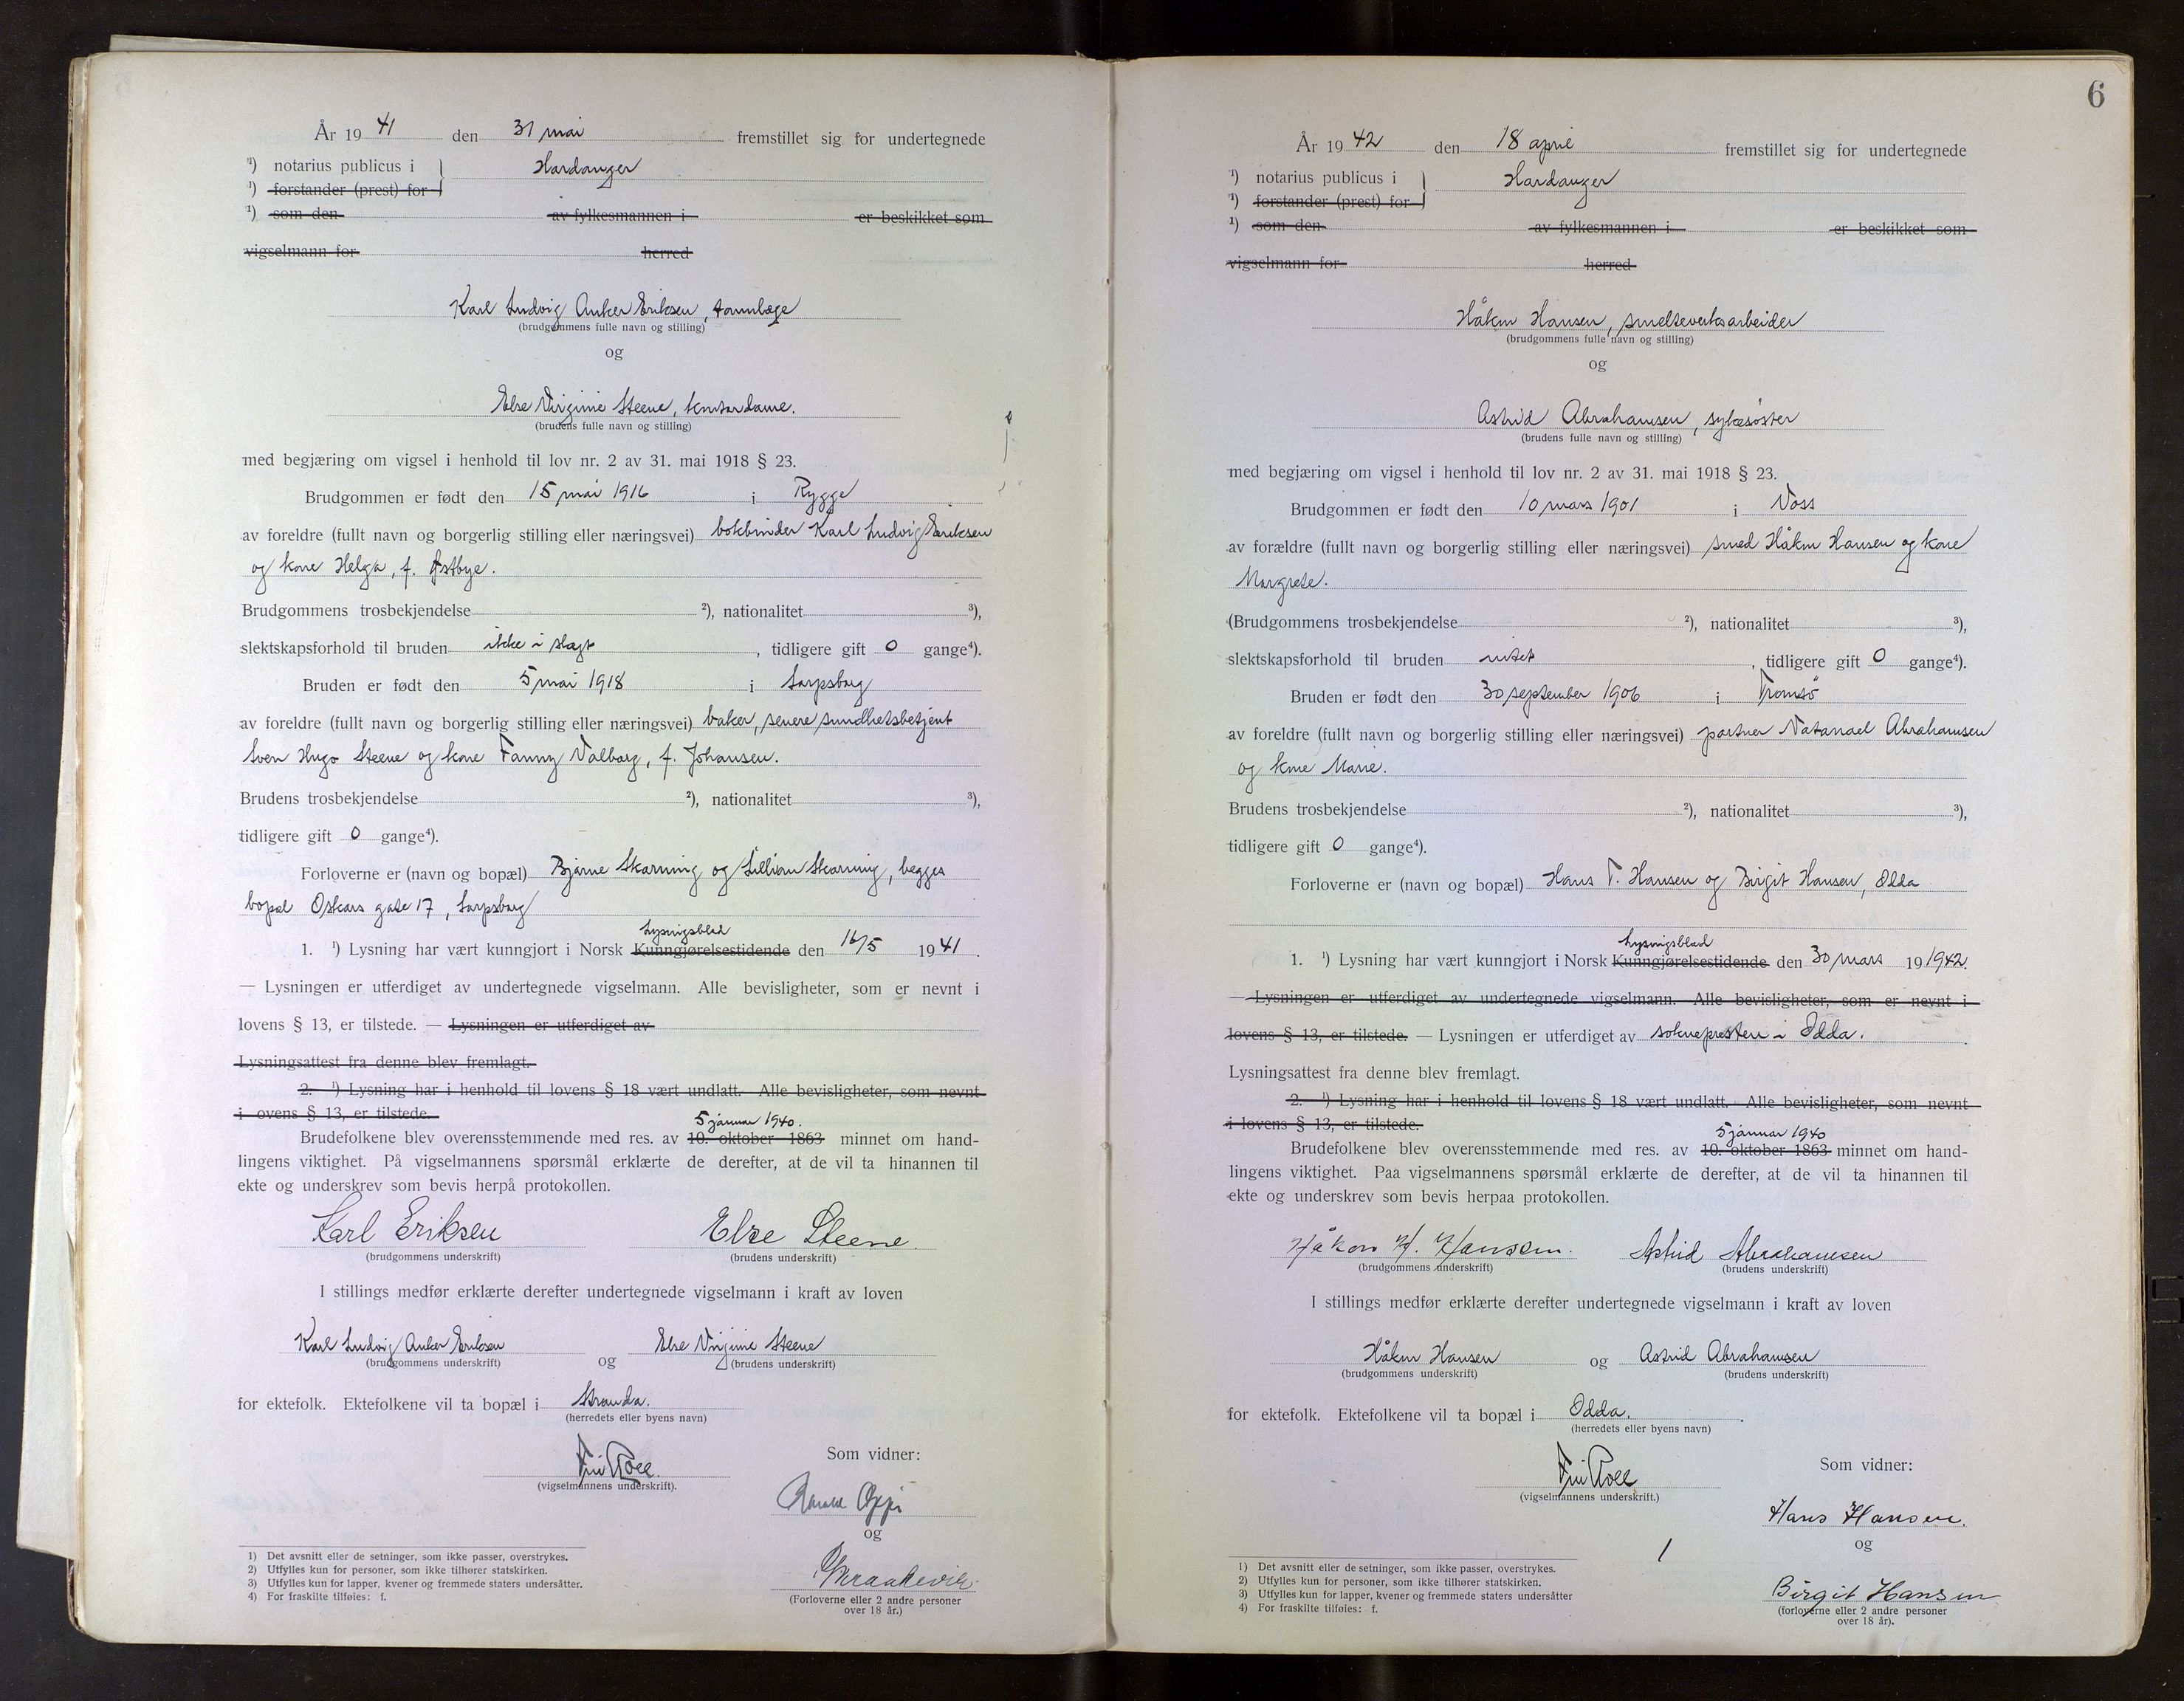 År 19 41 den 31 mai fremstillet sig for undertegnede
¹) notarius publicus i } Hardanger
¹) forstander (prest) for
¹) som den av fylkesmannen i er beskikket som
vigselmann for herred
Karl Ludvig Anker Eriksen, tannlæge
(brudgommens fulle navn og stilling)
og
Else Virginie Steene, kontordame.
(brudens fulle navn og stilling)
med begjæring om vigsel i henhold til lov nr. 2 av 31. mai 1918 § 23.
Brudgommen er født den 15 mai 1916 i Rygge
av foreldre (fullt navn og borgerlig stilling eller næringsvei) bokbinder Karl Ludvig Eriksen
og kone Helga, f. Østbye.
Brudgommens trosbekjendelse ²), nationalitet ³),
slektskapsforhold til bruden ikke i slagt, tidligere gift 0 gange⁴).
Bruden er født den 5 mai 1918 i Sarpsborg
av foreldre (fullt navn og borgerlig stilling eller næringsvei) baker, senere sundhetsbetjent
Sven Hugo Steene og kone Fanny Valborg, f. Johansen.
Brudens trosbekjendelse ²), nationalitet ³),
tidligere gift 0 gange⁴).
Forloverne er (navn og bopæl) Bjarne Skarning og Lillian Skarning, begges
bopæl Oskars gate 17, Sarpsborg
Lysningsblad
1. ¹) Lysning har vært kunngjort i Norsk Kunngjørelsestidende den 16/5 19 41.
— Lysningen er utferdiget av undertegnede vigselmann. Alle bevisligheter, som er nevnt i
lovens § 13, er tilstede. — Lysningen er utferdiget av
Lysningsattest fra denne blev fremlagt.
2. ¹) Lysning har i henhold til lovens § 18 vært undlatt. Alle bevisligheter, som nevnt
i ovens § 13, er tilstede.
5 januar 1940.
Brudefolkene blev overensstemmende med res. av 10. oktober 1863 minnet om hand-
lingens viktighet. På vigselmannens spørsmål erklærte de derefter, at de vil ta hinannen til
ekte og underskrev som bevis herpå protokollen.
Karl Eriksen Else Steene.
(brudgommens underskrift) (brudens underskrift)
I stillings medfør erklærte derefter undertegnede vigselmann i kraft av loven
Karl Ludvig Anker Eriksen og Else Virginie Steene
(brudgommens underskrift) (brudens underskrift)
for ektefolk. Ektefolkene vil ta bopæl i Stranda.
(herredets eller byens navn)
Som vidner:
(vigselmannens underskrift).
Harald
og
(Forloverne eller 2 andre personer
over 18 år.)
1) Det avsnitt eller de setninger, som ikke passer, overstrykes.
2) Utfylles kun for personer, som ikke tilhører statskirken.
3) Utfylles kun for lapper, kvener og fremmede staters undersåtter.
4) For fraskilte tilføies: f.
6
År 19 42 den 18 april fremstillet sig for undertegnede
¹) notarius publicus i } Hardanger
¹) forstander (prest) for
¹) som den av fylkesmannen i er beskikket som
vigselmann for herred
Håkon Hansen, smelteverksarbeider
(brudgommens fulle navn og stilling)
og
Astrid Abrahamsen, sykesøster
(brudens fulle navn og stilling)
med begjæring om vigsel i henhold til lov nr. 2 av 31. mai 1918 § 23.
Brudgommen er født den 10 mars 1901 i Voss
av forældre (fullt navn og borgerlig stilling eller næringsvei) smed Håkon Hansen og kone
Margrete.
(Brudgommens trosbekjendelse ²), nationalitet ³),
slektskapsforhold til bruden intet, tidligere gift 0 gange⁴).
Bruden er født den 30 september 1906 i Tromsö
av foreldre (fullt navn og borgerlig stilling eller næringsvei) partner Natanael Abrahamsen
og kone Marie.
Brudens trosbekjendelse ²), nationalitet ³),
tidligere gift 0 gange⁴).
Forloverne er (navn og bopæl) Hans T. Hansen og Birgit Hansen, Odda
Lysningsblad
1. ¹) Lysning har vært kunngjort i Norsk Kunngjørelsestidende den 30 mars 19 1942.
— Lysningen er utferdiget av undertegnede vigselmann. Alle bevisligheter, som er nevnt i
lovens § 13, er tilstede. — Lysningen er utferdiget av soknepresten i Odda.
Lysningsattest fra denne blev fremlagt.
2. ¹) Lysning har i henhold til lovens § 18 vært undlatt. Alle bevisligheter, som nevnt
i lovens § 13, er tilstede.
5 januar 1940
Brudefolkene blev overensstemmende med res. av 10. oktober 1863 minnet om hand-
lingens viktighet. Paa vigselmannens spørsmål erklærte de derefter, at de vil ta hinannen til
ekte og underskrev som bevis herpaa protokollen.
Håkon H. Hanssen. Astrid Abrahamsen
(brudgommens underskrift) (brudens underskrift)
I stillings medfør erklærte derefter undertegnede vigselmann i kraft av loven
Håkon Hansen og Astrid Abrahamsen
(brudgommens underskrift) (brudens underskrift)
for ektefolk. Ektefolkene vil ta bopæl i Odda.
(herredets eller byens navn)
Som vidner:
(vigselmannens underskrift.)
Hans Hansen.
og
Birgit Hansen
(forloverne eller 2 andre personer
over 18 år).
1) Det avsnitt eller de setninger, som ikke passer, overstrykes.
2) Utfylles kun for personer, som ikke tilhører statskirken.
3) Utfylles kun for lapper, kvener og fremmede staters undersåtter
4) For fraskilte tilføies: f.